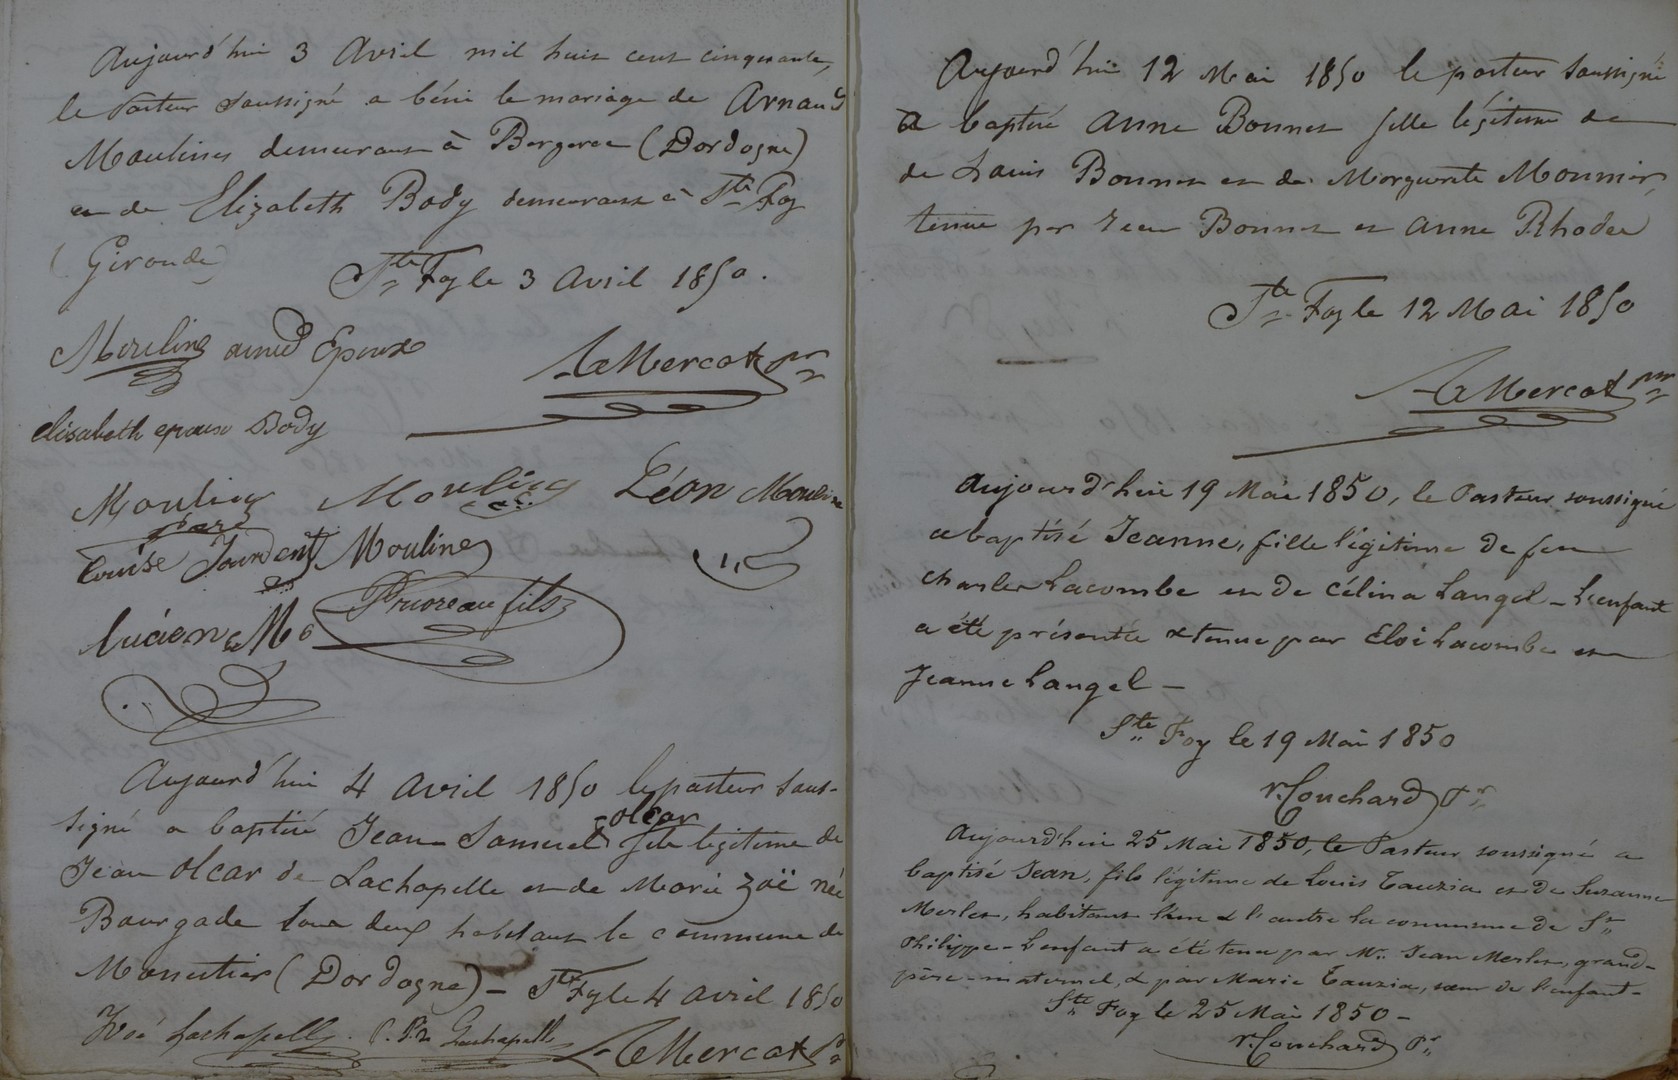 Aujourd'hui 3 Avril mil huit cent cinquante,
le Pasteur soussigné a béni le mariage de Arnaud
Moulines demeurant à Bergerac (Dordogne)
et de Elizabeth Body demeurant à Ste Foy
(Gironde)
Ste Foy le 3 Avril 1850.
Moulines ainé Epoux
A Mercat pr
elisabeth epouse Body
Moulines Moulines Léon Moulines
père
Louise Jourdent Moulines
Prioreau fils
Lucien Mo
Aujourd'hui 4 Avril 1850 le pasteur sous-
signé a baptisé Jean Samuel Olcar fils légitime de
Jean Olcar de Lachapelle et de Marie Zoë née
Bourgade tous deux habitant la commune de
Monestier (Dordogne) - Ste Foy le 4 Avril 1850
Zoé Lachapelle. Lachapelle
A Mercat Pr
Aujourd'hui 12 Mai 1850 le pasteur soussigné
a baptisé Anne Bonnet fille légitime de
de Louis Bonnet et de Marguerite Monnier,
tenue par Jean Bonnet et Anne Rhodes
Ste Foy le 12 Mai 1850
A Mercat pr
Aujourd'hui 19 Mai 1850, le Pasteur soussigné
a baptisé Jeanne, fille légitime de feu
Charles Lacombe et de Célina Langel - L'enfant
a été présentée & tenue par Eloi Lacombe et
Jeanne Langel -
Ste Foy le 19 Mai 1850
r. Couchard Pr
Aujourd'hui 25 Mai 1850, le Pasteur soussigné a
baptisé Jean, fils légitime de Louis Tauzia et de Suzanne
Merlet, habitant l'un & l'autre la commune de St
Philippe - L'enfant a été tenu par Mr Jean Merlet, grand-
père-maternel, & par Marie Tauzia, sœur de l'enfant -
Ste Foy le 25 Mai 1850 -
r. Couchard Pr